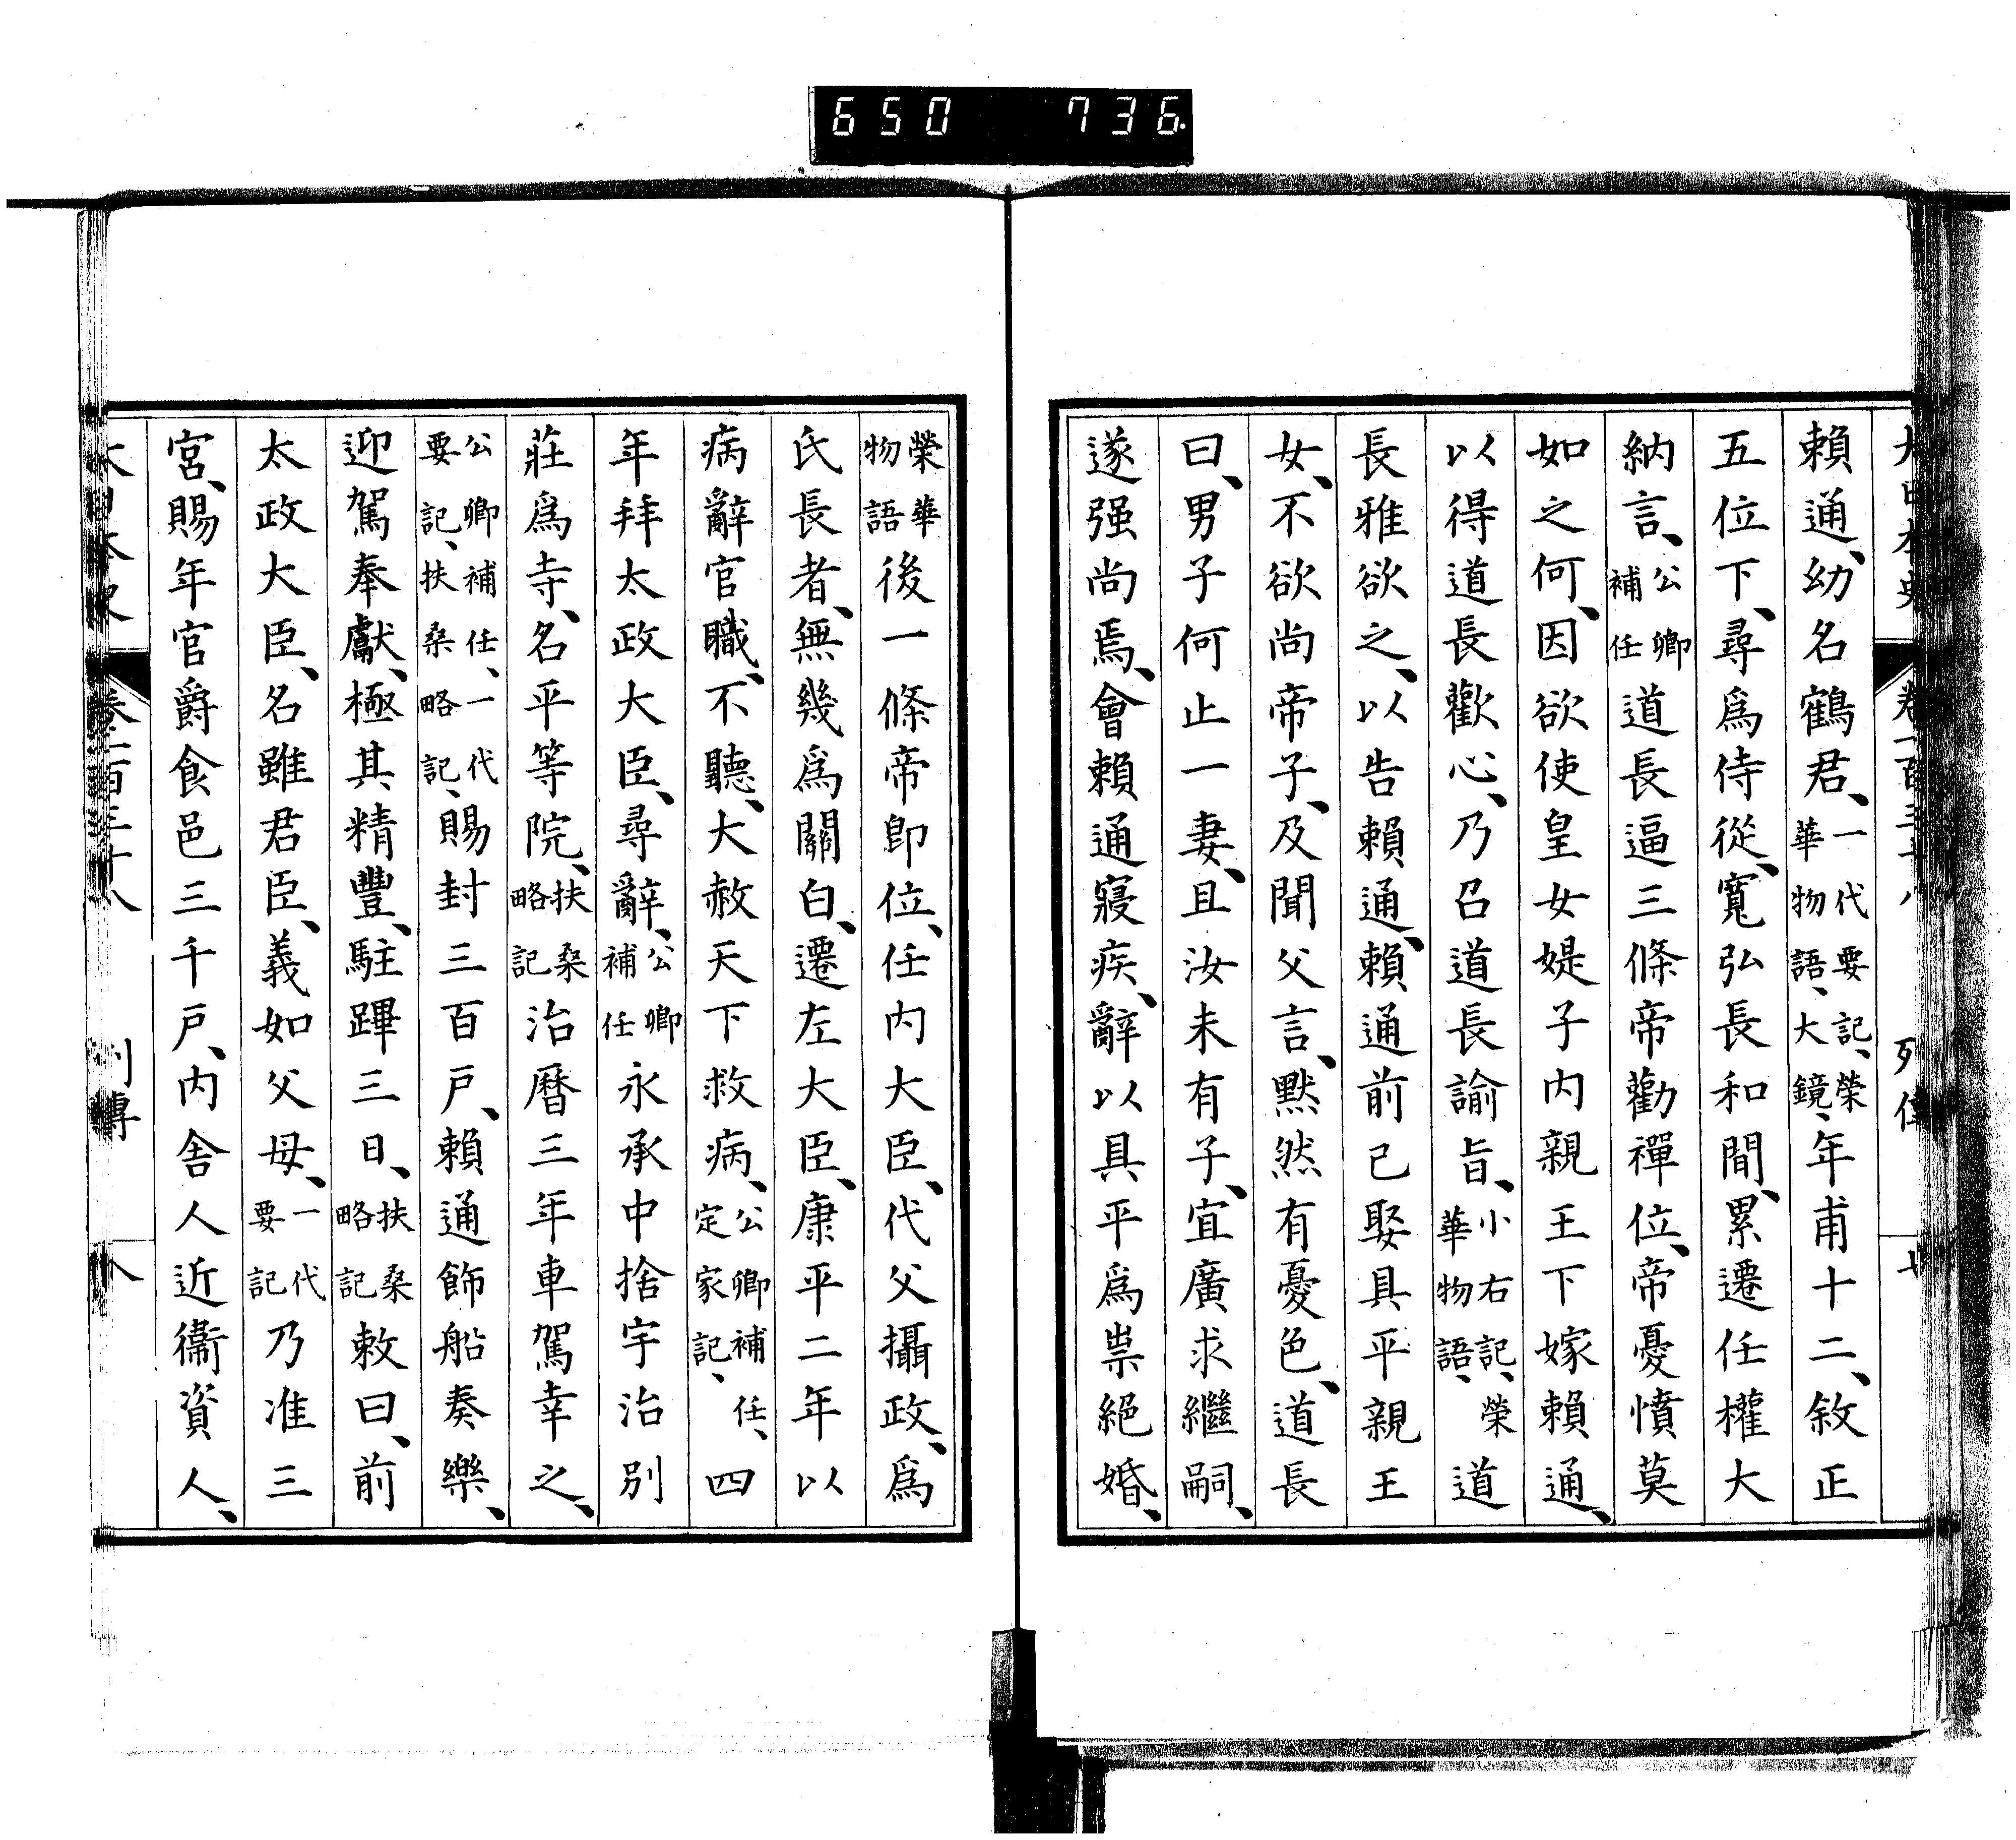 650 736
賴通、幼名鶴君、一代要記、榮華物語、大鏡、年甫十二、敘正
五位下、尋爲侍從、寬弘長和間、累遷任權大
納言、公卿補任道長逼三條帝勸禪位、帝憂憤莫
如之何、因欲使皇女媞子內親王下嫁賴通、
以得道長歡心、乃召道長諭旨、小右記、榮華物語、道
長雅欲之、以告賴通、賴通前已娶具平親王
女、不欲尚帝子、及聞父言、默然有憂色、道長
曰、男子何止一妻、且汝未有子、宜廣求繼嗣、
遂强尚焉、會賴通寢疾、辭以具平爲祟絕婚、
榮華物語後一條帝卽位、任內大臣、代父攝政、爲
氏長者、無幾爲關白、遷左大臣、康平二年以
病辭官職、不聽、大赦天下救病、公卿補任、定家記、四
年拜太政大臣、尋辭、公卿補任永承中捨宇治別
莊爲寺、名平等院、扶桑略記治曆三年車駕幸之、
公卿補任、一代要記、扶桑略記、賜封三百戶、賴通飾船奏樂、
迎駕奉獻、極其精豐、駐蹕三日、扶桑略記敕曰、前
太政大臣、名雖君臣、義如父母、一代要記乃准三
宮、賜年官爵食邑三千戶、內舍人近衞資人、